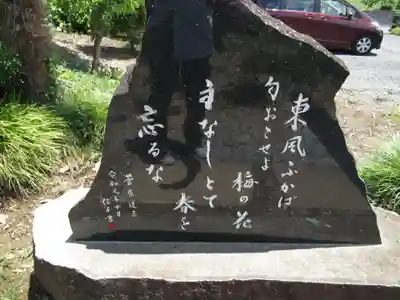 東風ふかば
匂おこせよ
梅の花
主なしとて
春を
忘るな
菅原道真